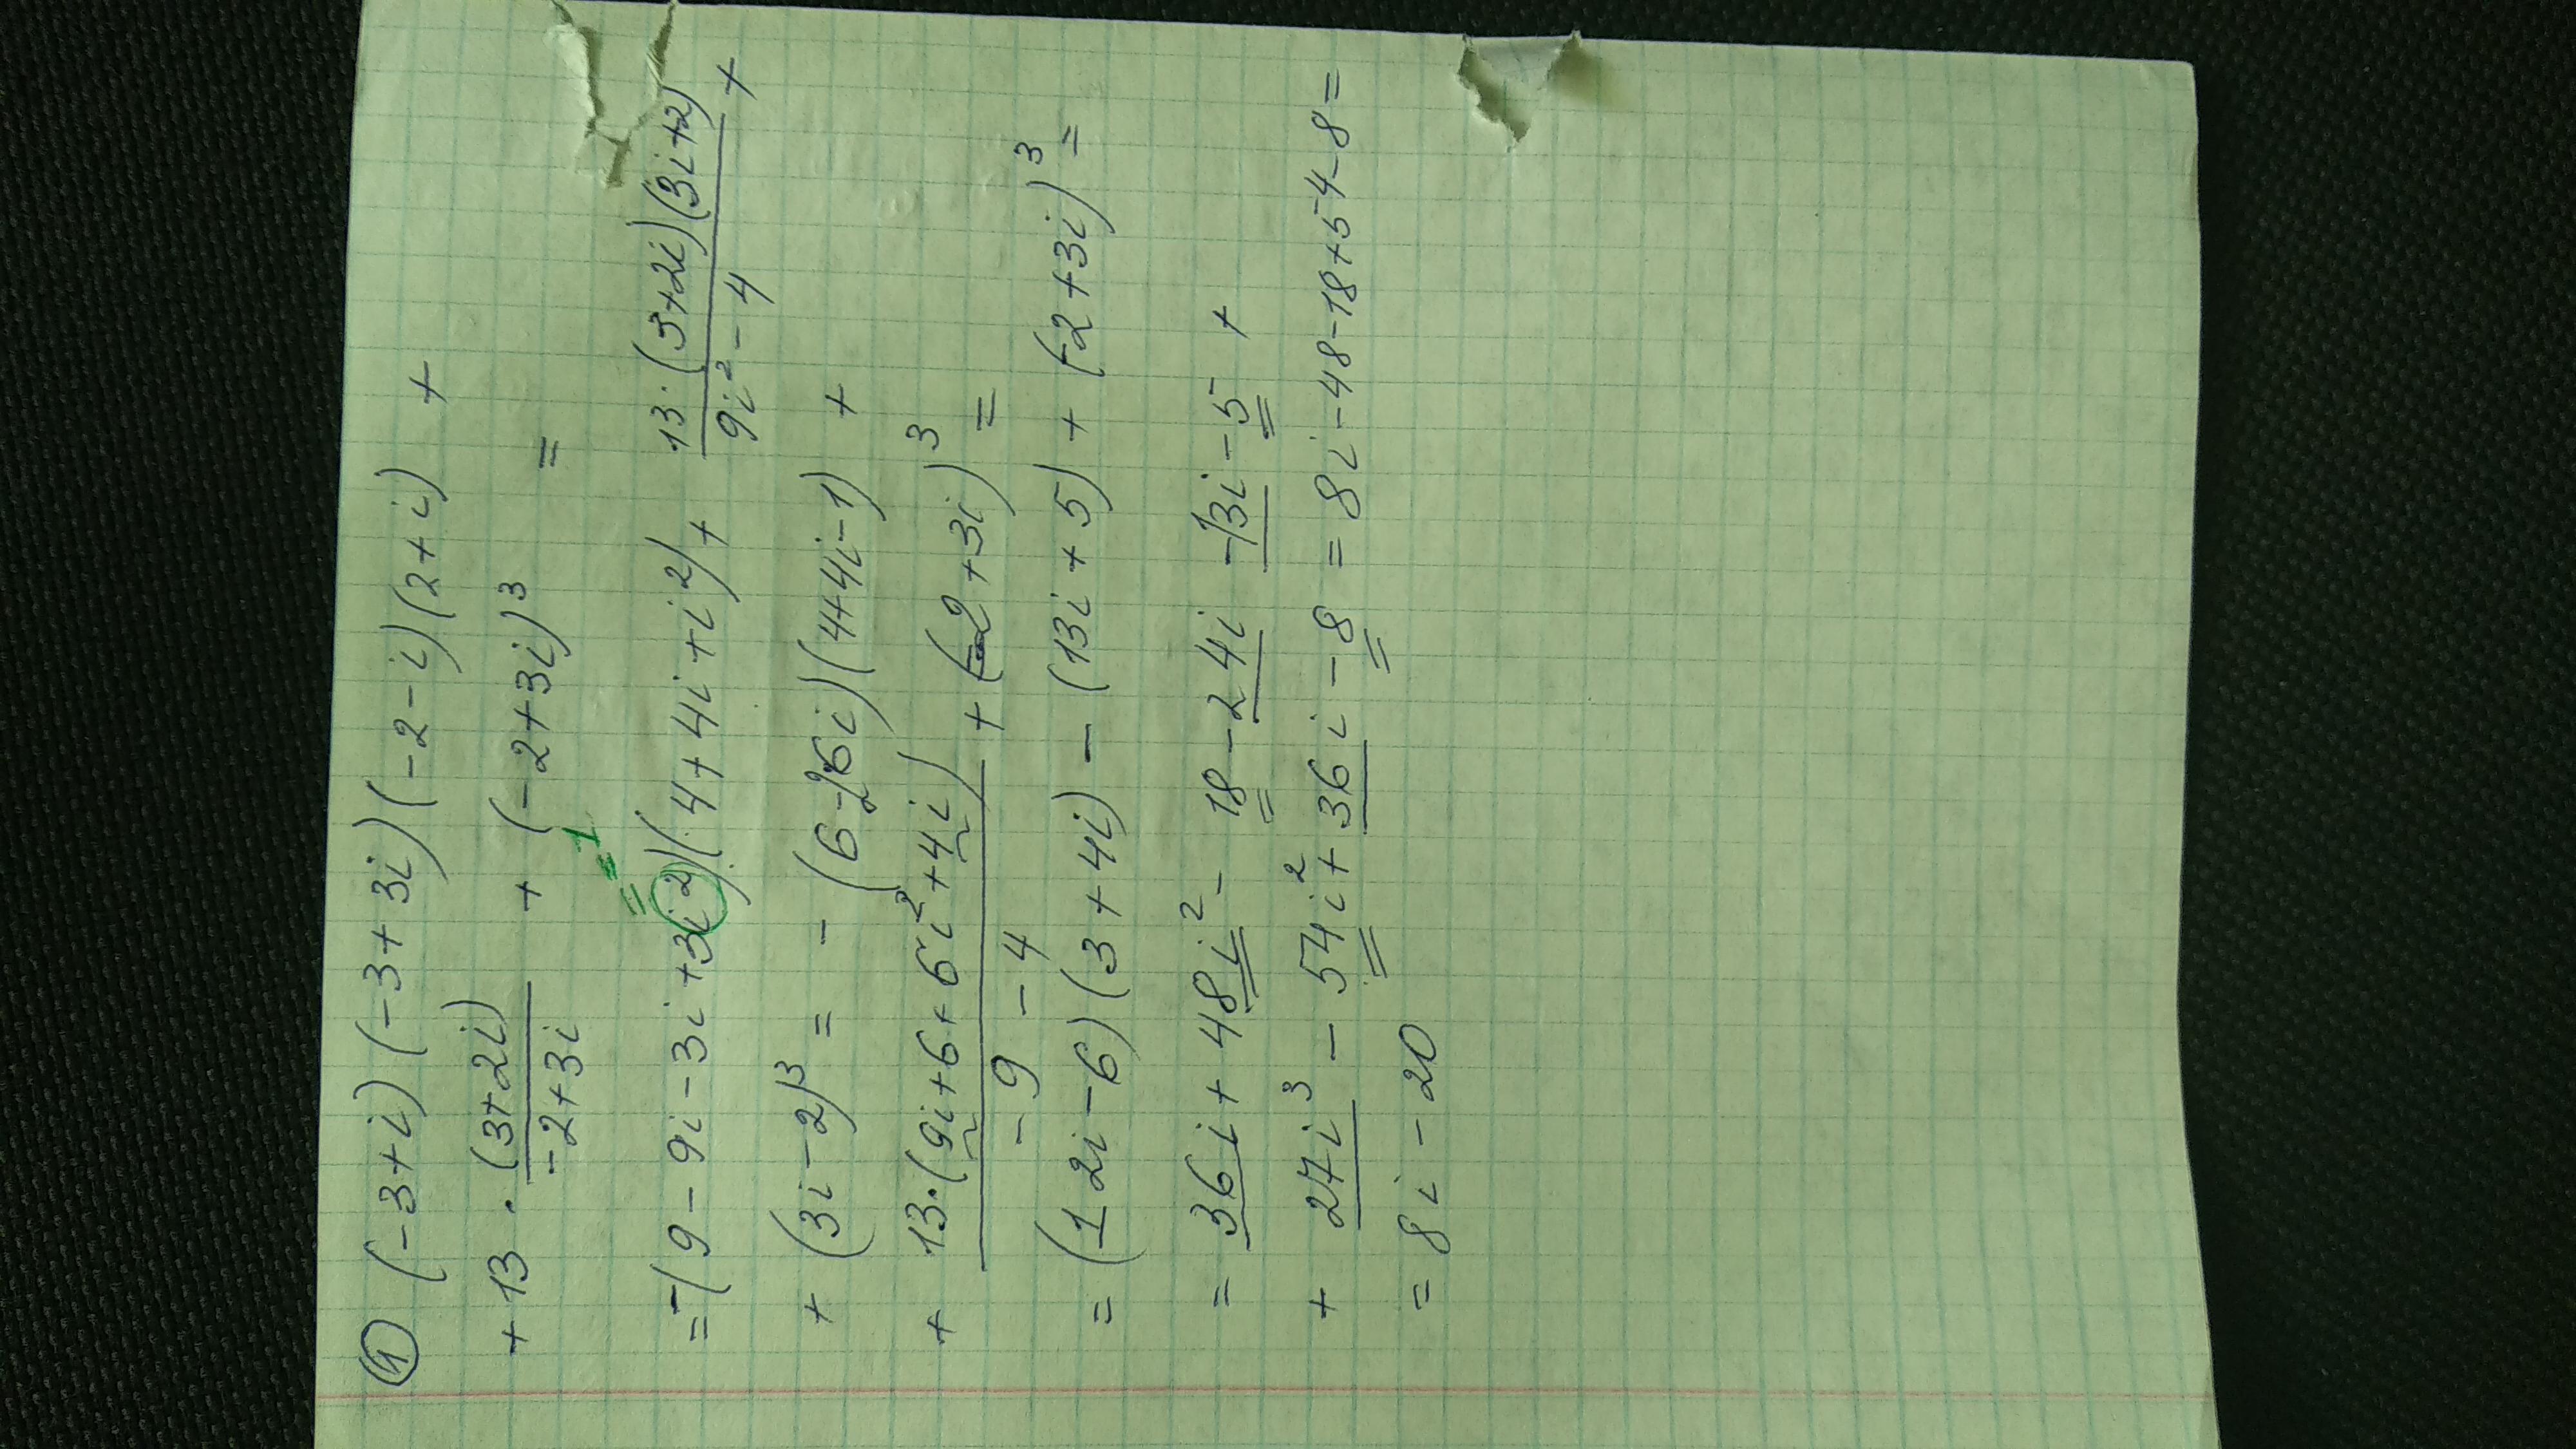 ④ (-3+i)(-3+3i)(-2-i)(2+i) +
+ 13 · (3+2i)/(-2+3i) + (-2+3i)³ =
= -(9-9i-3i+3i²)(4+4i+i²) + 13·(3+2i)(3i+2)/(9i²-4) +
= -1
+ (3i-2)³ = -(6-12i)(4+4i-1) +
+ 13·(9i+6+6i²+4i)/(-9-4) + (-2+3i)³ =
= (12i-6)(3+4i) - (13i+5) + (-2+3i)³ =
= 36i + 48i² - 18 - 24i - 13i - 5 +
+ 27i³ - 54i² + 36i - 8 = 8i - 48 - 18 + 54 - 8 =
= 8i - 20